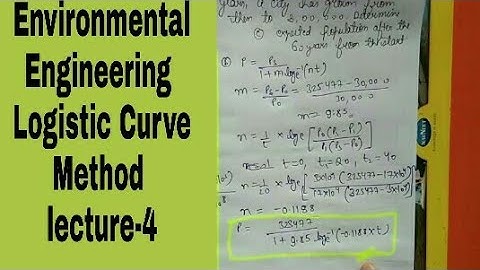 Environmental
Engineering
Logistic Curve
Method
lecture-4
years, a city has grown from
then to 3,00,000 determine
© expected population after the
60 years from the start.
P = Ps / 1 + m loge⁻¹ (nt)
m = Ps - Po / Po = 325477 - 30,000 / 30,000
m = 9.85.
n = 1/t₁ × loge [Po(Ps - P1) / P1(Ps - Po)]
t=0, t₁=20, t₂=40
n = 1/20 × loge [3×10⁴ (325477 - 17×10⁴) / 17×10⁴ (325477 - 3×10⁴)]
n = -0.1188
P = 325477 / 1 + 9.85 loge⁻¹ (-0.1188×t)